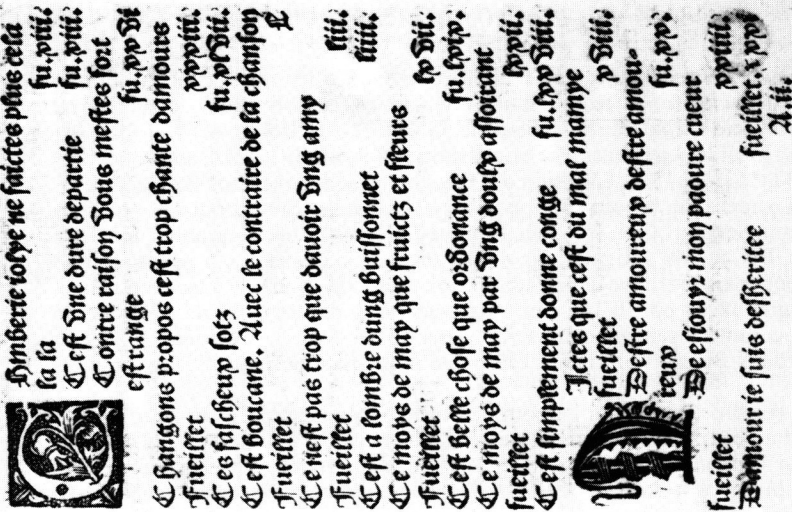 iolye ne faictes plus cela
la la fu.xviii.
Cest vne dure departie fu.xviii.
Contre raison vous mestes fort
estrange fu.xxvi
Changons propos cest trop chante damours
Fueillet xxxiii.
Ces fascheux sotz fu.xlvii.
Cest boucane. Auec le contraire de la chanson
Fueillet l
Ce nest pas trop que dauoir vng amy
Fueillet liii.
Cest a lombre dung buissonnet liiii.
Ce moys de may que fruictz et fleurs
Fueillet lxvii.
Cest belle chose que ordonnance fu.lxix.
Ce moys de may par vng doulx assortant
fueillet lxxii.
Cest simplement donne conge fu.xxviii.
Dictes que cest du mal mamye
fueillet xviii.
Destre amoureux destre amou-
reux fu.xx.
De resiouyr mon pouure cueur
fueillet xxiiii.
Damour ie suis desheritee fueillet.xxxi
A.ii.